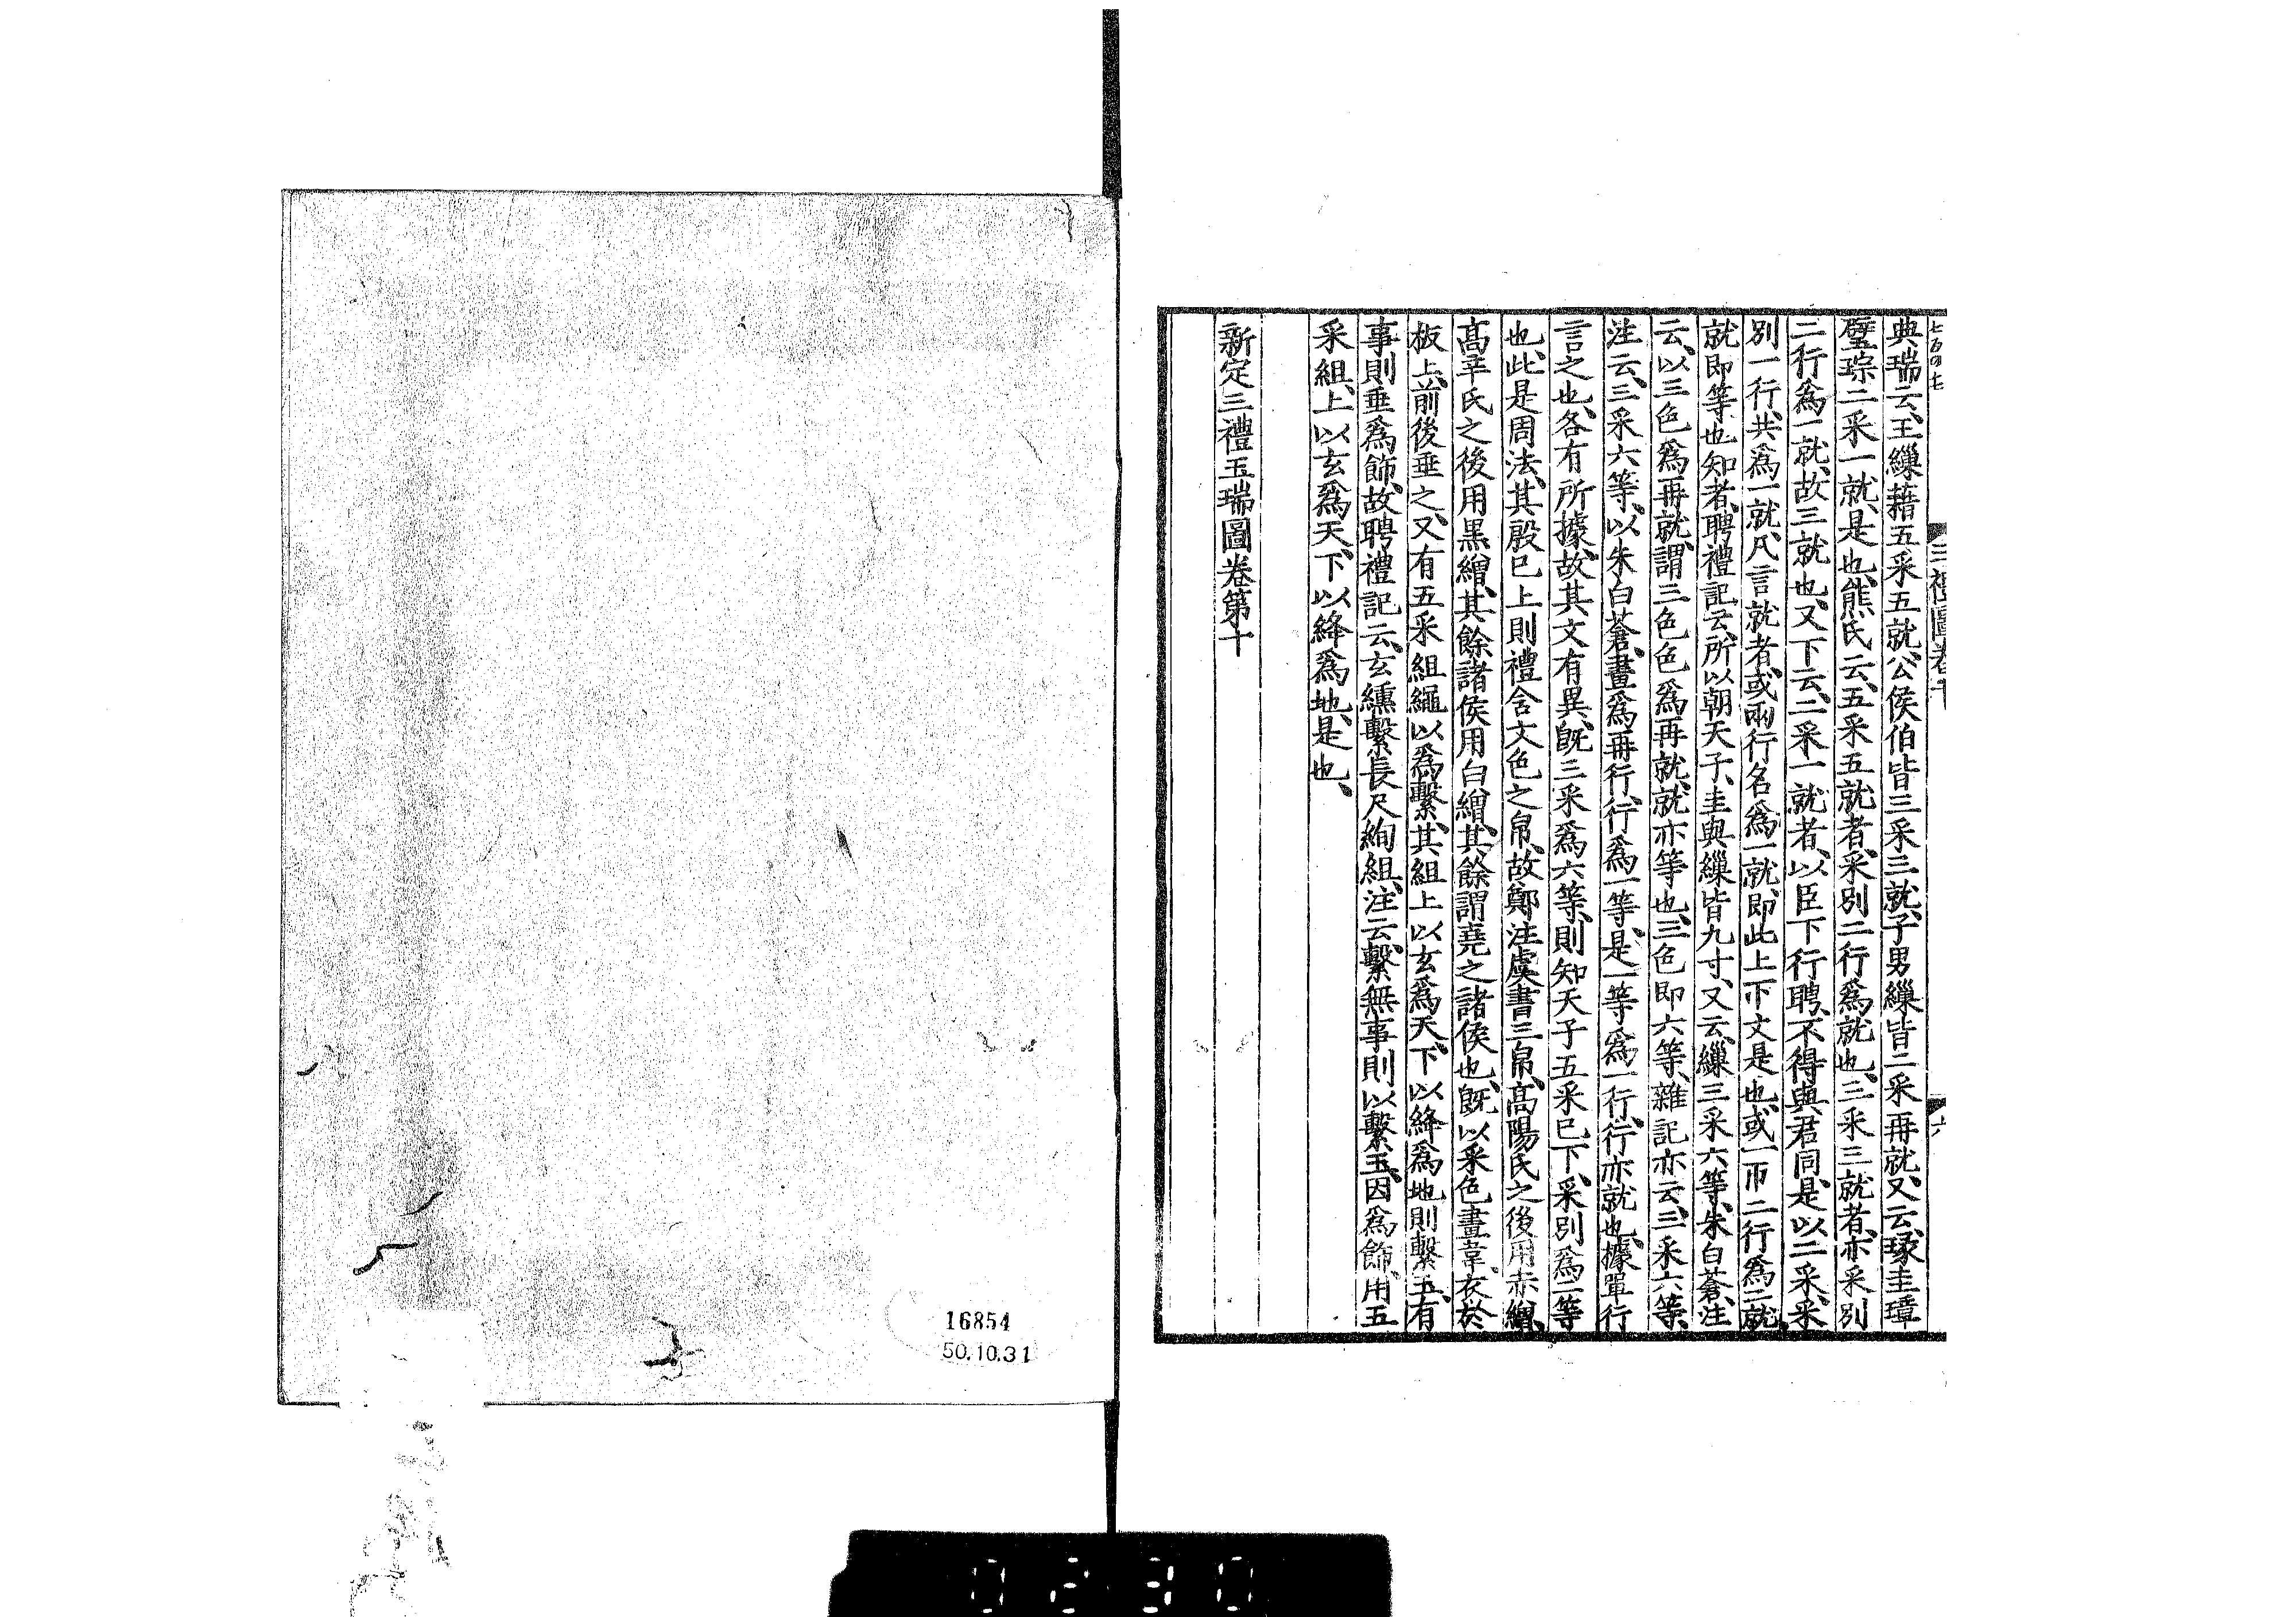 七百四七
三禮圖卷十
六
典瑞云、王繅藉五采五就、公侯伯皆三采三就、子男繅皆二采再就、又云、瑑圭璋
璧琮二采一就、是也、熊氏云、五采五就者、采別二行爲就也、三采三就者、亦采別
二行爲一就、故三就也、又下云、二采一就者、以臣下行聘、不得與君同、是以二采、采
別一行、共爲一就、凡言就者、或兩行名爲一就、即此上下文是也、或一帀二行爲二就、
就即等也、知者、聘禮記云、所以朝天子、圭與繅皆九寸、又云、繅三采六等、朱白蒼、注
云、以三色爲再就、謂三色色爲再就、就亦等也、三色即六等、雜記亦云、三采六等、
注云、三采六等、以朱白蒼、畫爲再行、行爲一等、是一等爲一行、行亦就也、據單行
言之也、各有所據、故其文有異、旣三采爲六等、則知天子五采已下、采別爲二等
也、此是周法、其殷已上則禮含文色之帛、故鄭注虞書三帛、高陽氏之後用赤繒、
高辛氏之後用黑繒、其餘諸侯用白繒、其餘謂堯之諸侯也、旣以采色畫韋、衣於
板上、前後垂之、又有五采組繩以爲繫、其組上以玄爲天、下以絳爲地則繫玉、有
事則垂爲飾、故聘禮記云、玄纁繫長尺絢組、注云、繫無事則以繫玉、因爲飾、用五
采組、上以玄爲天、下以絳爲地、是也、
新定三禮玉瑞圖卷第十
16854
50.10.31
0230